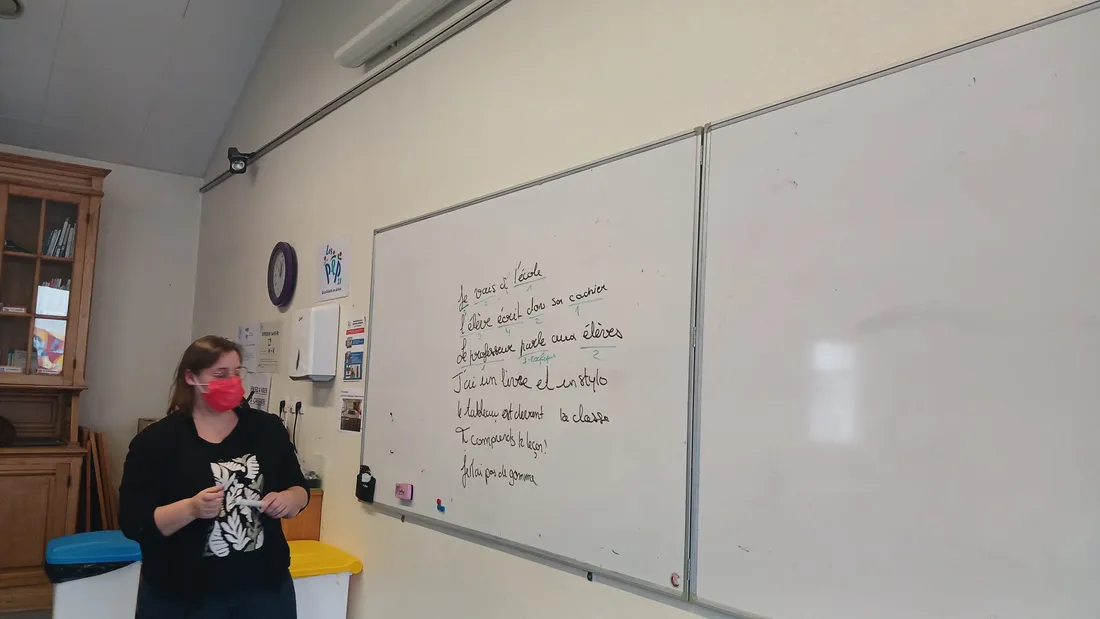 Les
PEP
Je vais à l'école
1
l'élève écrit dans son cachier
3 4 2 1
Le professeur parle aux élèves
2
J'ai un livre et un stylo
le tableau est devant la classe
Tu comprends le leçon!
Je n'ai pas de gomme